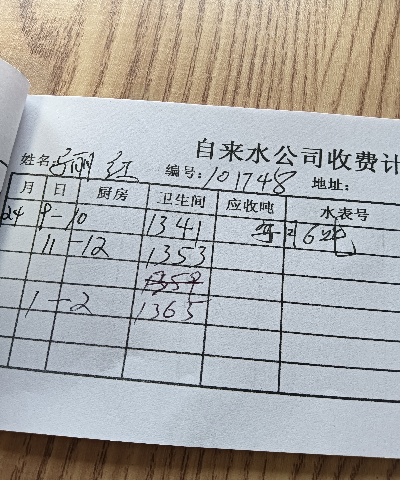 自来水公司收费计
姓名: 丽红 编号: 101748 地址:
月 日 厨房 卫生间 应收吨 水表号
24 9-10 1341
11-12 1353
1359
1-2 1365